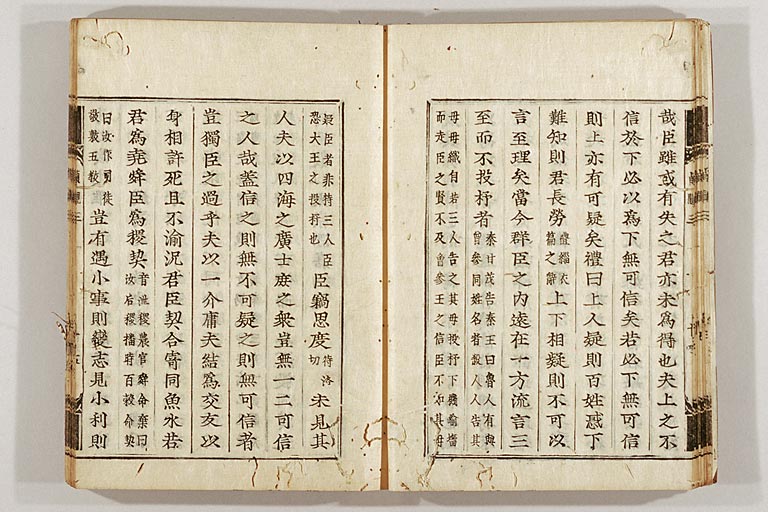 哉臣雖或有失之君亦未為得也夫上之不
信於下必以為下無可信矣若必下無可信
則上亦有可疑矣禮曰上人疑則百姓惑下
難知則君長勞禮緇衣篇之辭上下相疑則不可以
言至理矣當今群臣之內遠在一方流言三
至而不投杼者秦甘茂告秦王曰魯人有與曾參同姓名者殺人人告其
母母織自若三人告之其母投杼下機踰墻而走臣之賢不及曾參王之信臣不如其母
疑臣者非特三人臣恐大王之投杼也臣竊思度待洛切未見其
人夫以四海之廣士庶之衆豈無一二可信
之人哉蓋信之則無不可疑之則無可信者
豈獨臣之過乎夫以一介庸夫結為交友以
身相許死且不渝況君臣契合寄同魚水若
君為堯舜臣為稷契音泄稷農官舜命棄曰汝后稷播時百穀命契
曰汝作司徒敬敷五教豈有遇小事則變志見小利則